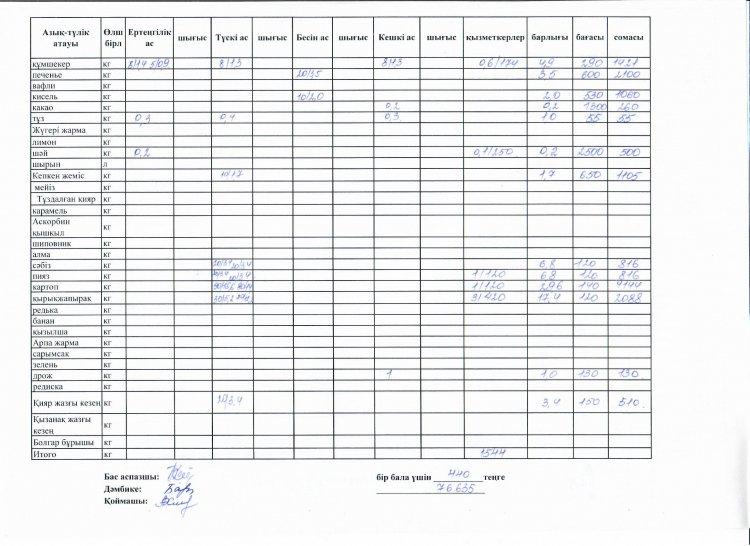 Азық-түлік атауы Өлш бірл Ертеңгілік ас шығыс Түскі ас шығыс Бесін ас шығыс Кешкі ас шығыс қызметкерлер барлығы бағасы сомасы
құмшекер кг 8/13 8/13 0,6/174 4,9 290 1421
печенье кг 20/3,5 3,5 600 2100
вафли кг
кисель кг 10/2,0 2,0 530 1060
какао кг 0,2 0,2 1300 260
тұз кг 0,3 0,4 0,3 1,0 55 55
Жүгері жарма кг
лимон кг
шәй кг 0,2 0,1/250 0,2 2500 500
шырын л
Кепкен жеміс кг 10/1,7 1,7 650 1105
мейіз кг
Тұздалған қияр кг
карамель кг
Аскорбин қышқыл кг
шиповник кг
алма кг
сәбіз кг 20/3,4 20/3,4 6,8 120 816
пияз кг 20/3,4 20/3,4 1/120 6,8 120 816
картоп кг 1/120 29,6 140 4144
қырыққапырақ кг 3/420 17,4 120 2088
редька кг
банан кг
қызылша кг
Арпа жарма кг
сарымсақ кг
зелень кг
дрож кг 1 1,0 130 130
редиска кг
Қияр жазғы кезең кг 20/3,4 3,4 150 510
Қызанақ жазғы кезең кг
Болгар бұрышы кг
Итого кг 1544
Бас аспазшы: бір бала үшін 440 теңге
Дәмбике: 76635
Қоймашы: